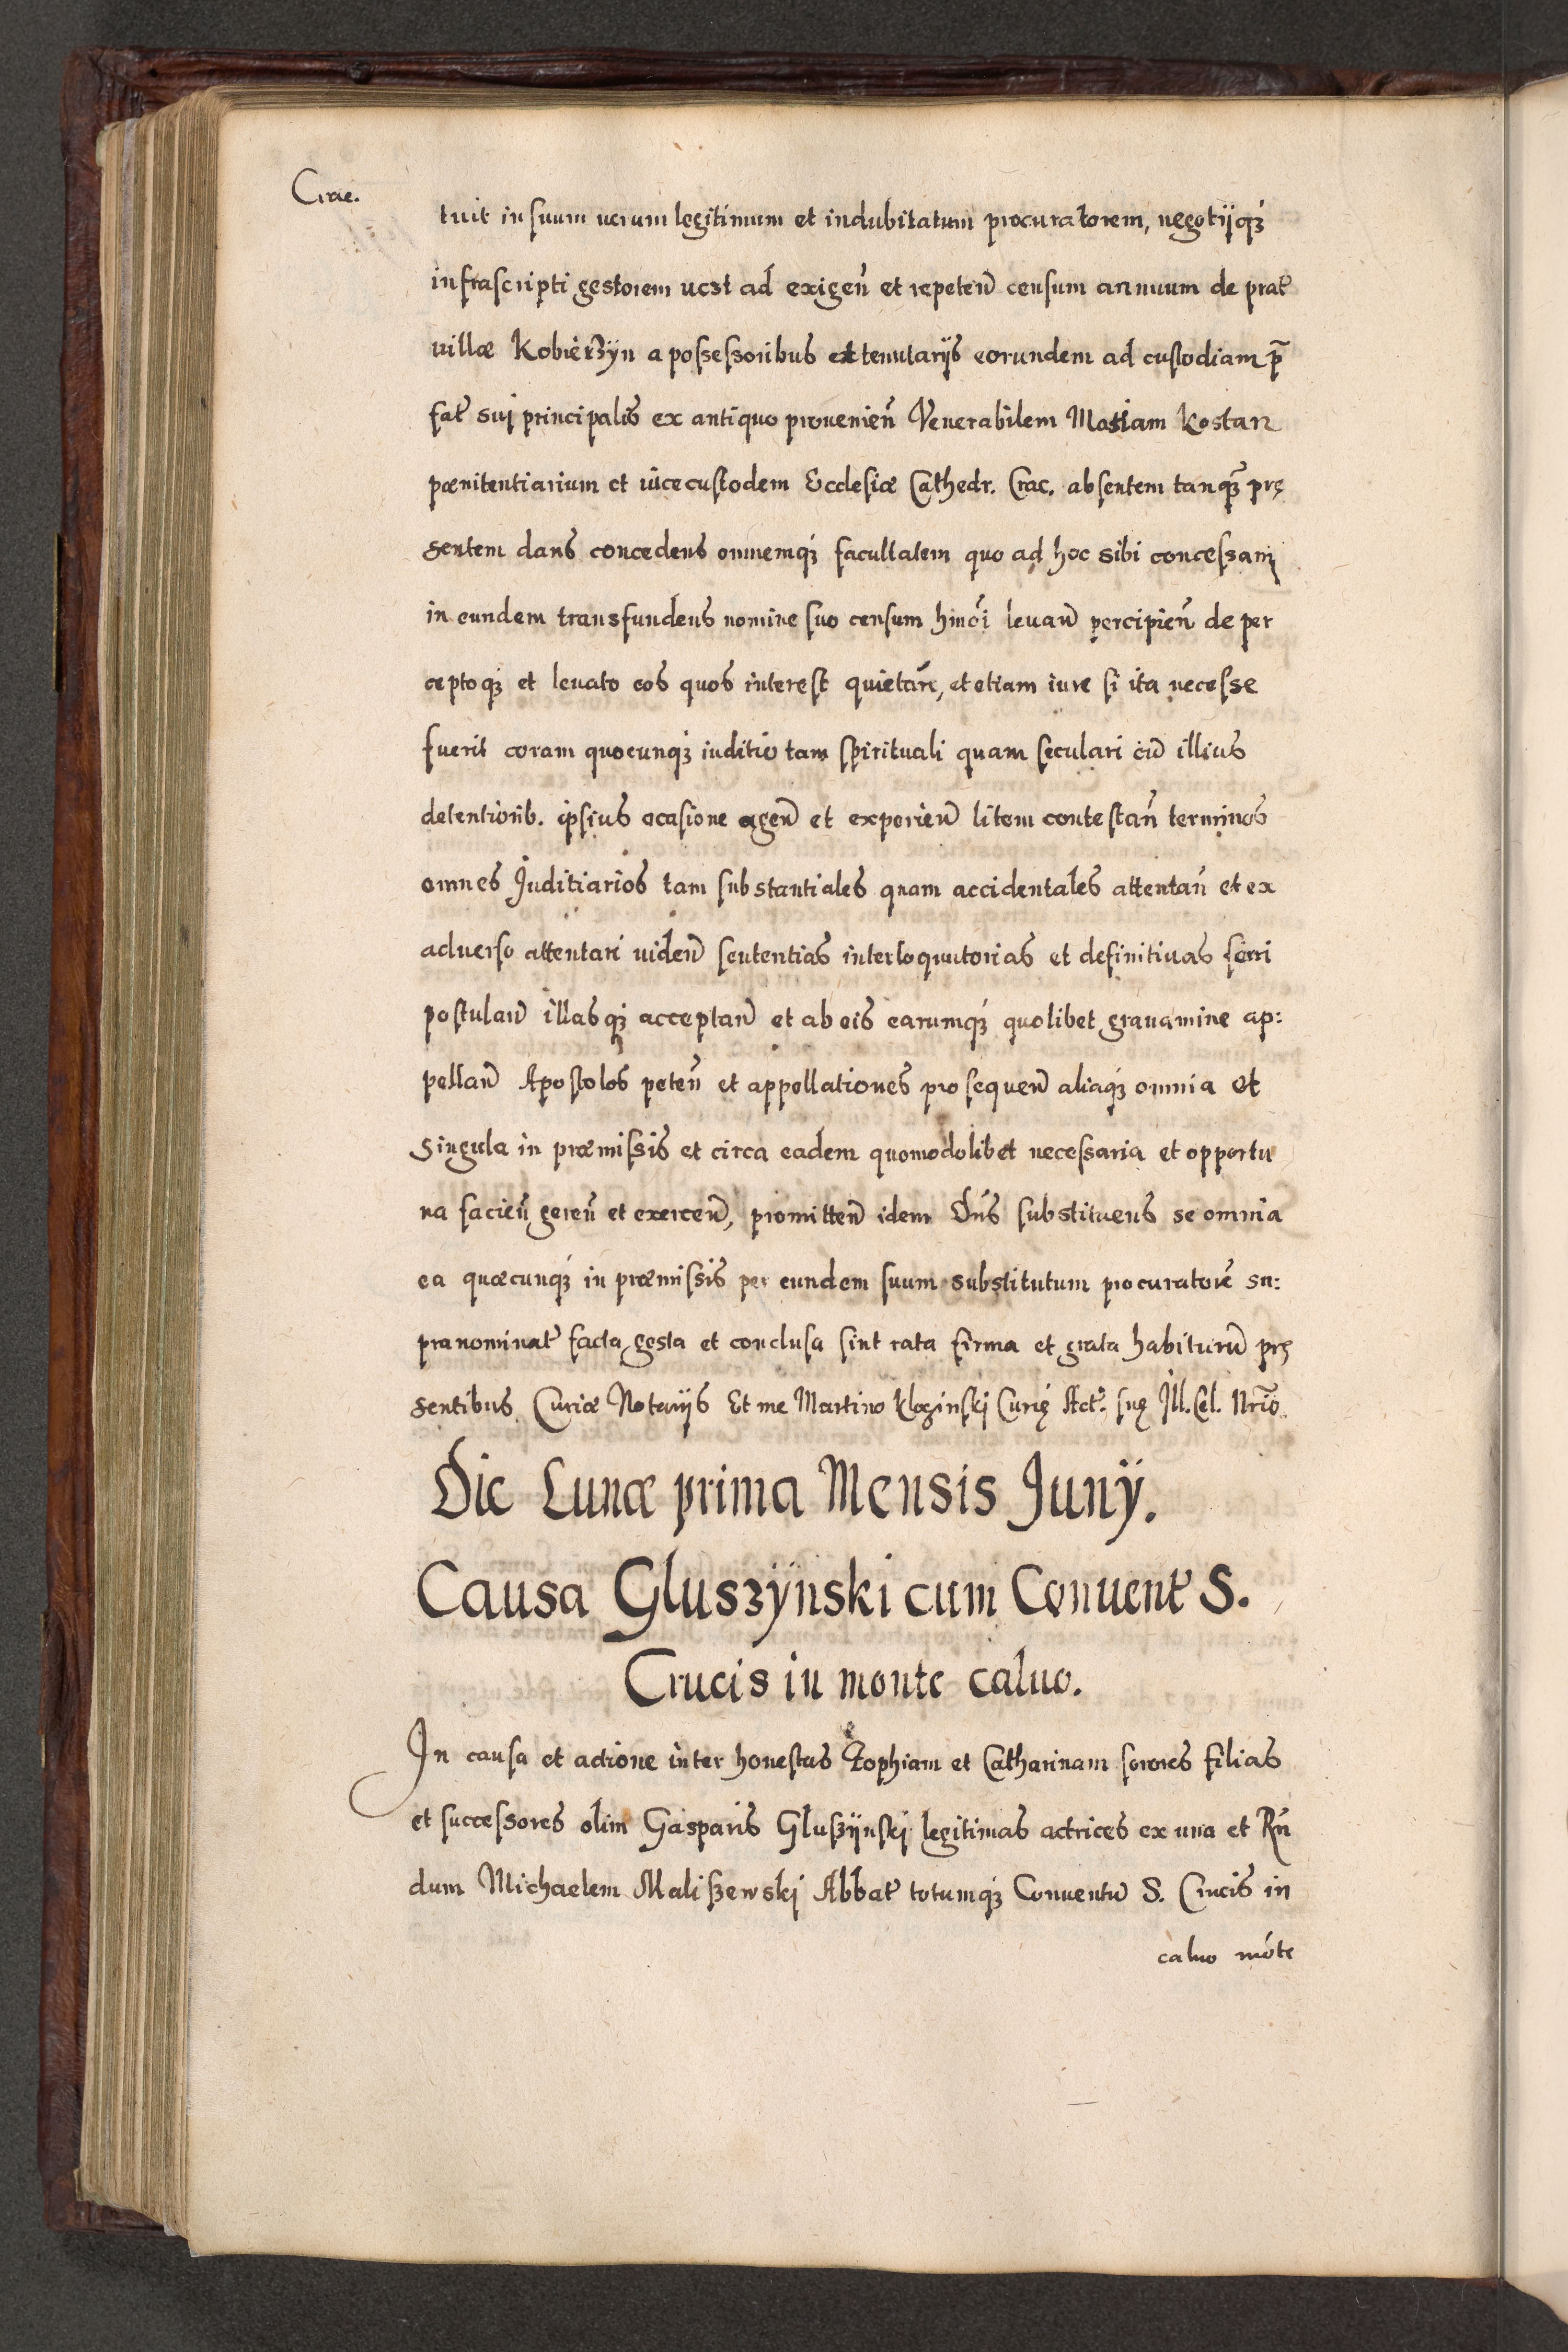 Crac.
tuit in suum uerum legitimum et indubitatum procuratorem, negotijq₃
infrascripti gestorem uczt ad exigen̄ et repeten̄ censum annuum de prat̃
uillæ Kobierzÿn a possessoribus et tenutarijs eorundem ad custodiam p̄
fat̃ sui principalis ex antiquo prouenien̄ Venerabilem Matiam Kostan
pœnitentiarium et uicecustodem Ecclesiæ Cathedr. Crac. absentem tanq̃₃ prę
sentem dans concedens omnemq₃ facultatem quo ad hoc sibi concessam
in eundem transfundens nomine suo censum hmōi leuan̄ percipien̄ de per
ceptoq₃ et leuato eos quos interest quietan̄, et etiam iure si ita necesse
fuerit coram quocunq₃ iuditio tam spirituali quam seculari cū illius
detentorib. ipsius ocasione agen̄ et experien̄ litem contestan̄ terminos
omnes Juditiarios tam substantiales quam accidentales attentan̄ et ex
aduerso attentari uiden̄ sententias interloquutorias et definitiuas ferri
postulan̄ illasq₃ acceptan̄ et ab eis earumq₃ quolibet grauamine ap:
pellan̄ Apostolos peten̄ et appellationes prosequen̄ aliaq₃ omnia et
singula in præmissis et circa eadem quomodolibet necessaria et opportu
na facien̄ geren̄ et exercen̄, promitten̄ idem Dn̄s substituens se omnia
ea quæcunq₃ in præmissis per eundem suum substitutum procuratorē su:
pranominat̃ facta gesta et conclusa sint rata firma et grata habiturū prę
sentibus Curiæ Notarijs Et me Martino Kłoginskj Curię Act. suę Ill. Cel. Nrīo
Die Lunæ prima Mensis Junÿ.
Causa Gluszÿnski cum Conuent̃ S.
Crucis in monte caluo.
In causa et actione inter honestas Zophiam et Catharinam sorores filias
et successores olim Gasparis Gluszÿnskj legitimas actrices ex una et Rn̄
dum Michaelem Maliszewskj Abbat̃ totumq₃ Conuentū S. Crucis in
caluo mōte